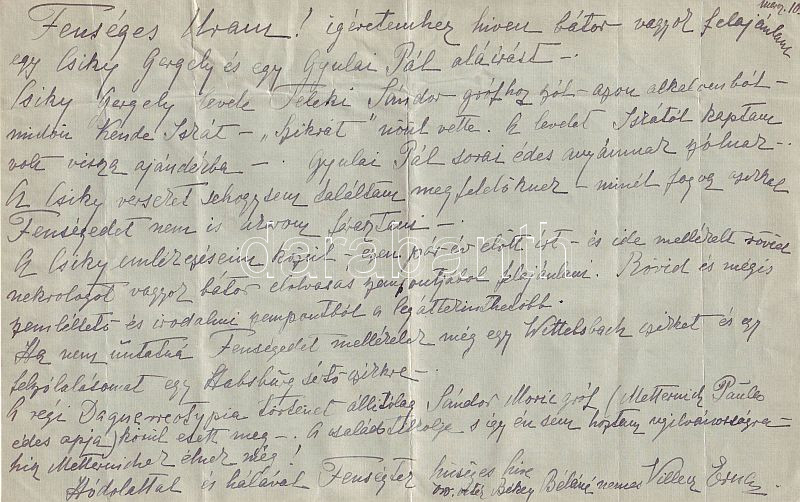 márc. 10.
Fenséges Uram! igéretemhez hiven bátor vagyok felajánlani
egy Csiky Gergely és egy Gyulai Pál aláirást —.
Csiky Gergely levele Teleki Sándor grófhoz szól — azon alkalomból —
midőn Kende Iszát — „Szikrát" nőül vette. A levelet Iszától kaptam
volt vissza ajándékba —. Gyulai Pál sorai édes anyámnak szólnak —.
A Csiky verseket sehogysem találtam megfelelőknek — minél fogva azokkal
Fenségedet nem is akarom fárasztani —.
A Csiky emlékezéseim közül — ezen pár év előtt irt — és ide mellékelt rövid
nekrologot vagyok bátor elolvasás szempontjából felajánlani. Rövid és mégis
szemléltető és irodalmi szempontból a legáttekinthetőbb.
Ha nem untatná Fenségedet mellékelek még egy Wittelsbach czikket és egy
felszólalásomat egy Habsburg sértő czikkre —
A régi Daguerreotypia történet állitólag Sándor Moric gróf (Metternich Paula
édes apja) körül esett meg —. A család s így én sem hoztam nyilvánosságra —
hisz Metternichek élnek még!
Hódolattal és hálával Fenséged hűséges hive
özv. Béláné nemes Villecz Erna
darabanth